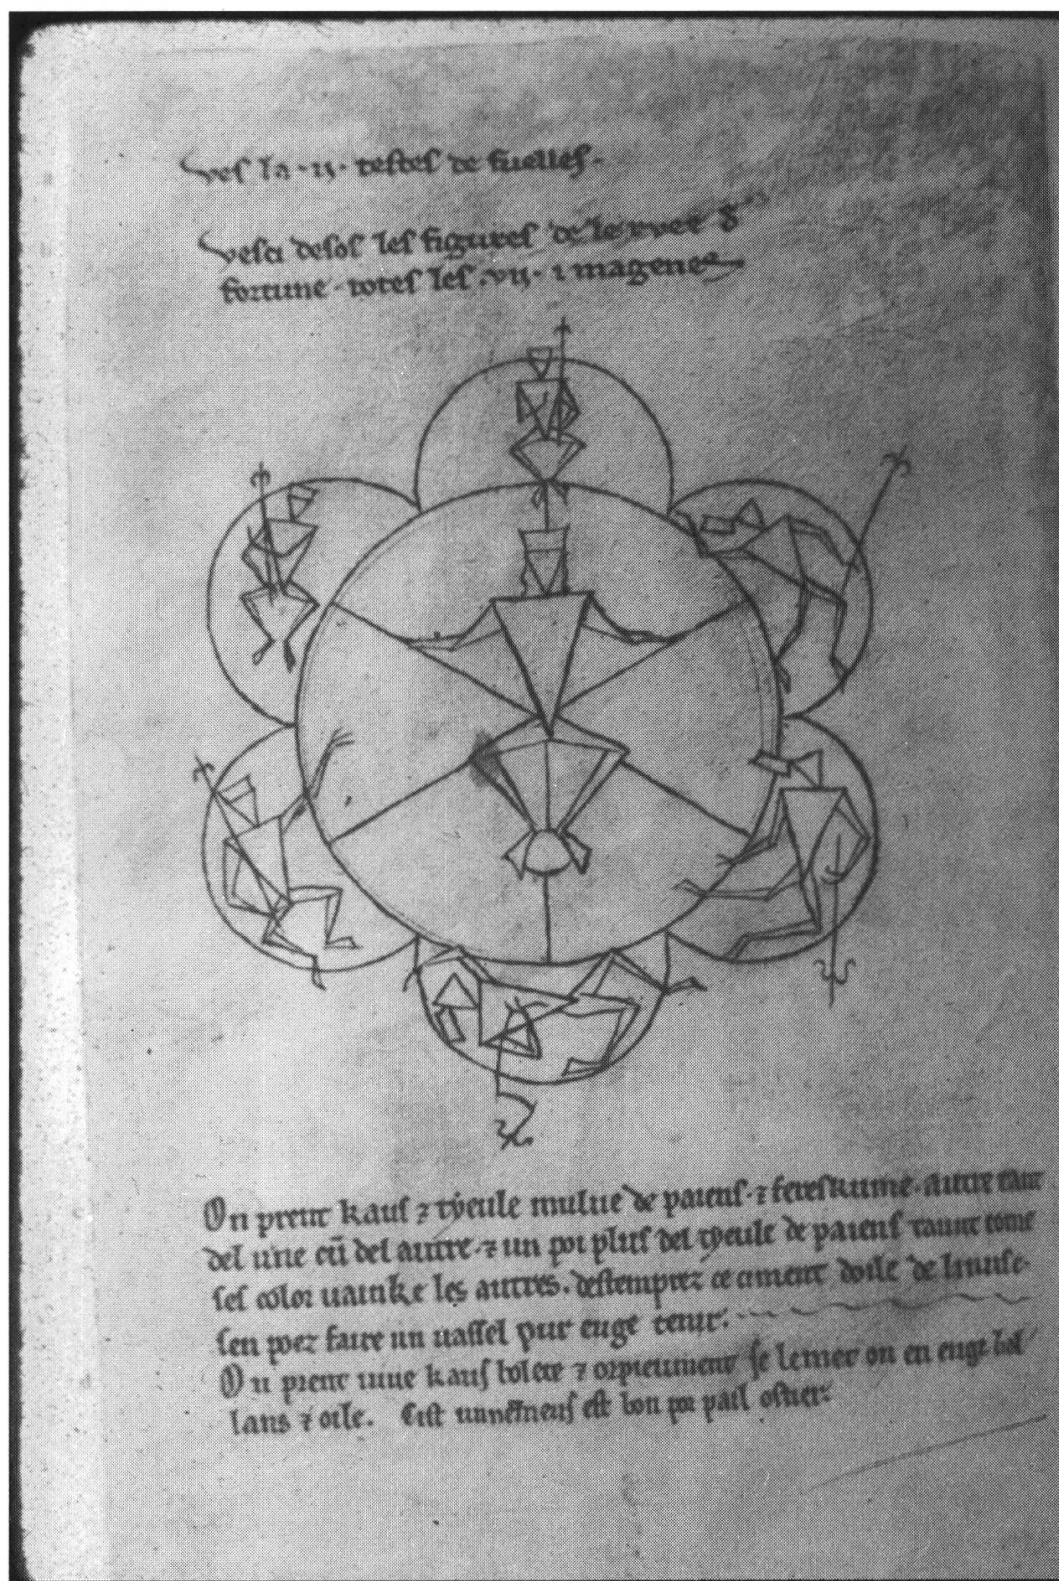 ves la .ii. testes de fuelles.
vesci desos les figures de le ruee d
fortune . totes les .vii. imagenes
On prent kaus ⁊ tyeule mulue de paiens . ⁊ autre tant
del une cū del autre . ⁊ un poi plus del tyeule de paiens taunt come
ses color vainke les autres . destemprez ce ciment doile de linuse .
sen poez faire un vassel pur euge tenir .
On prent vive kaus bolete ⁊ orpieument se le met on en euge bol
lans ⁊ oile . Cist unnemens est bon por pail oster .